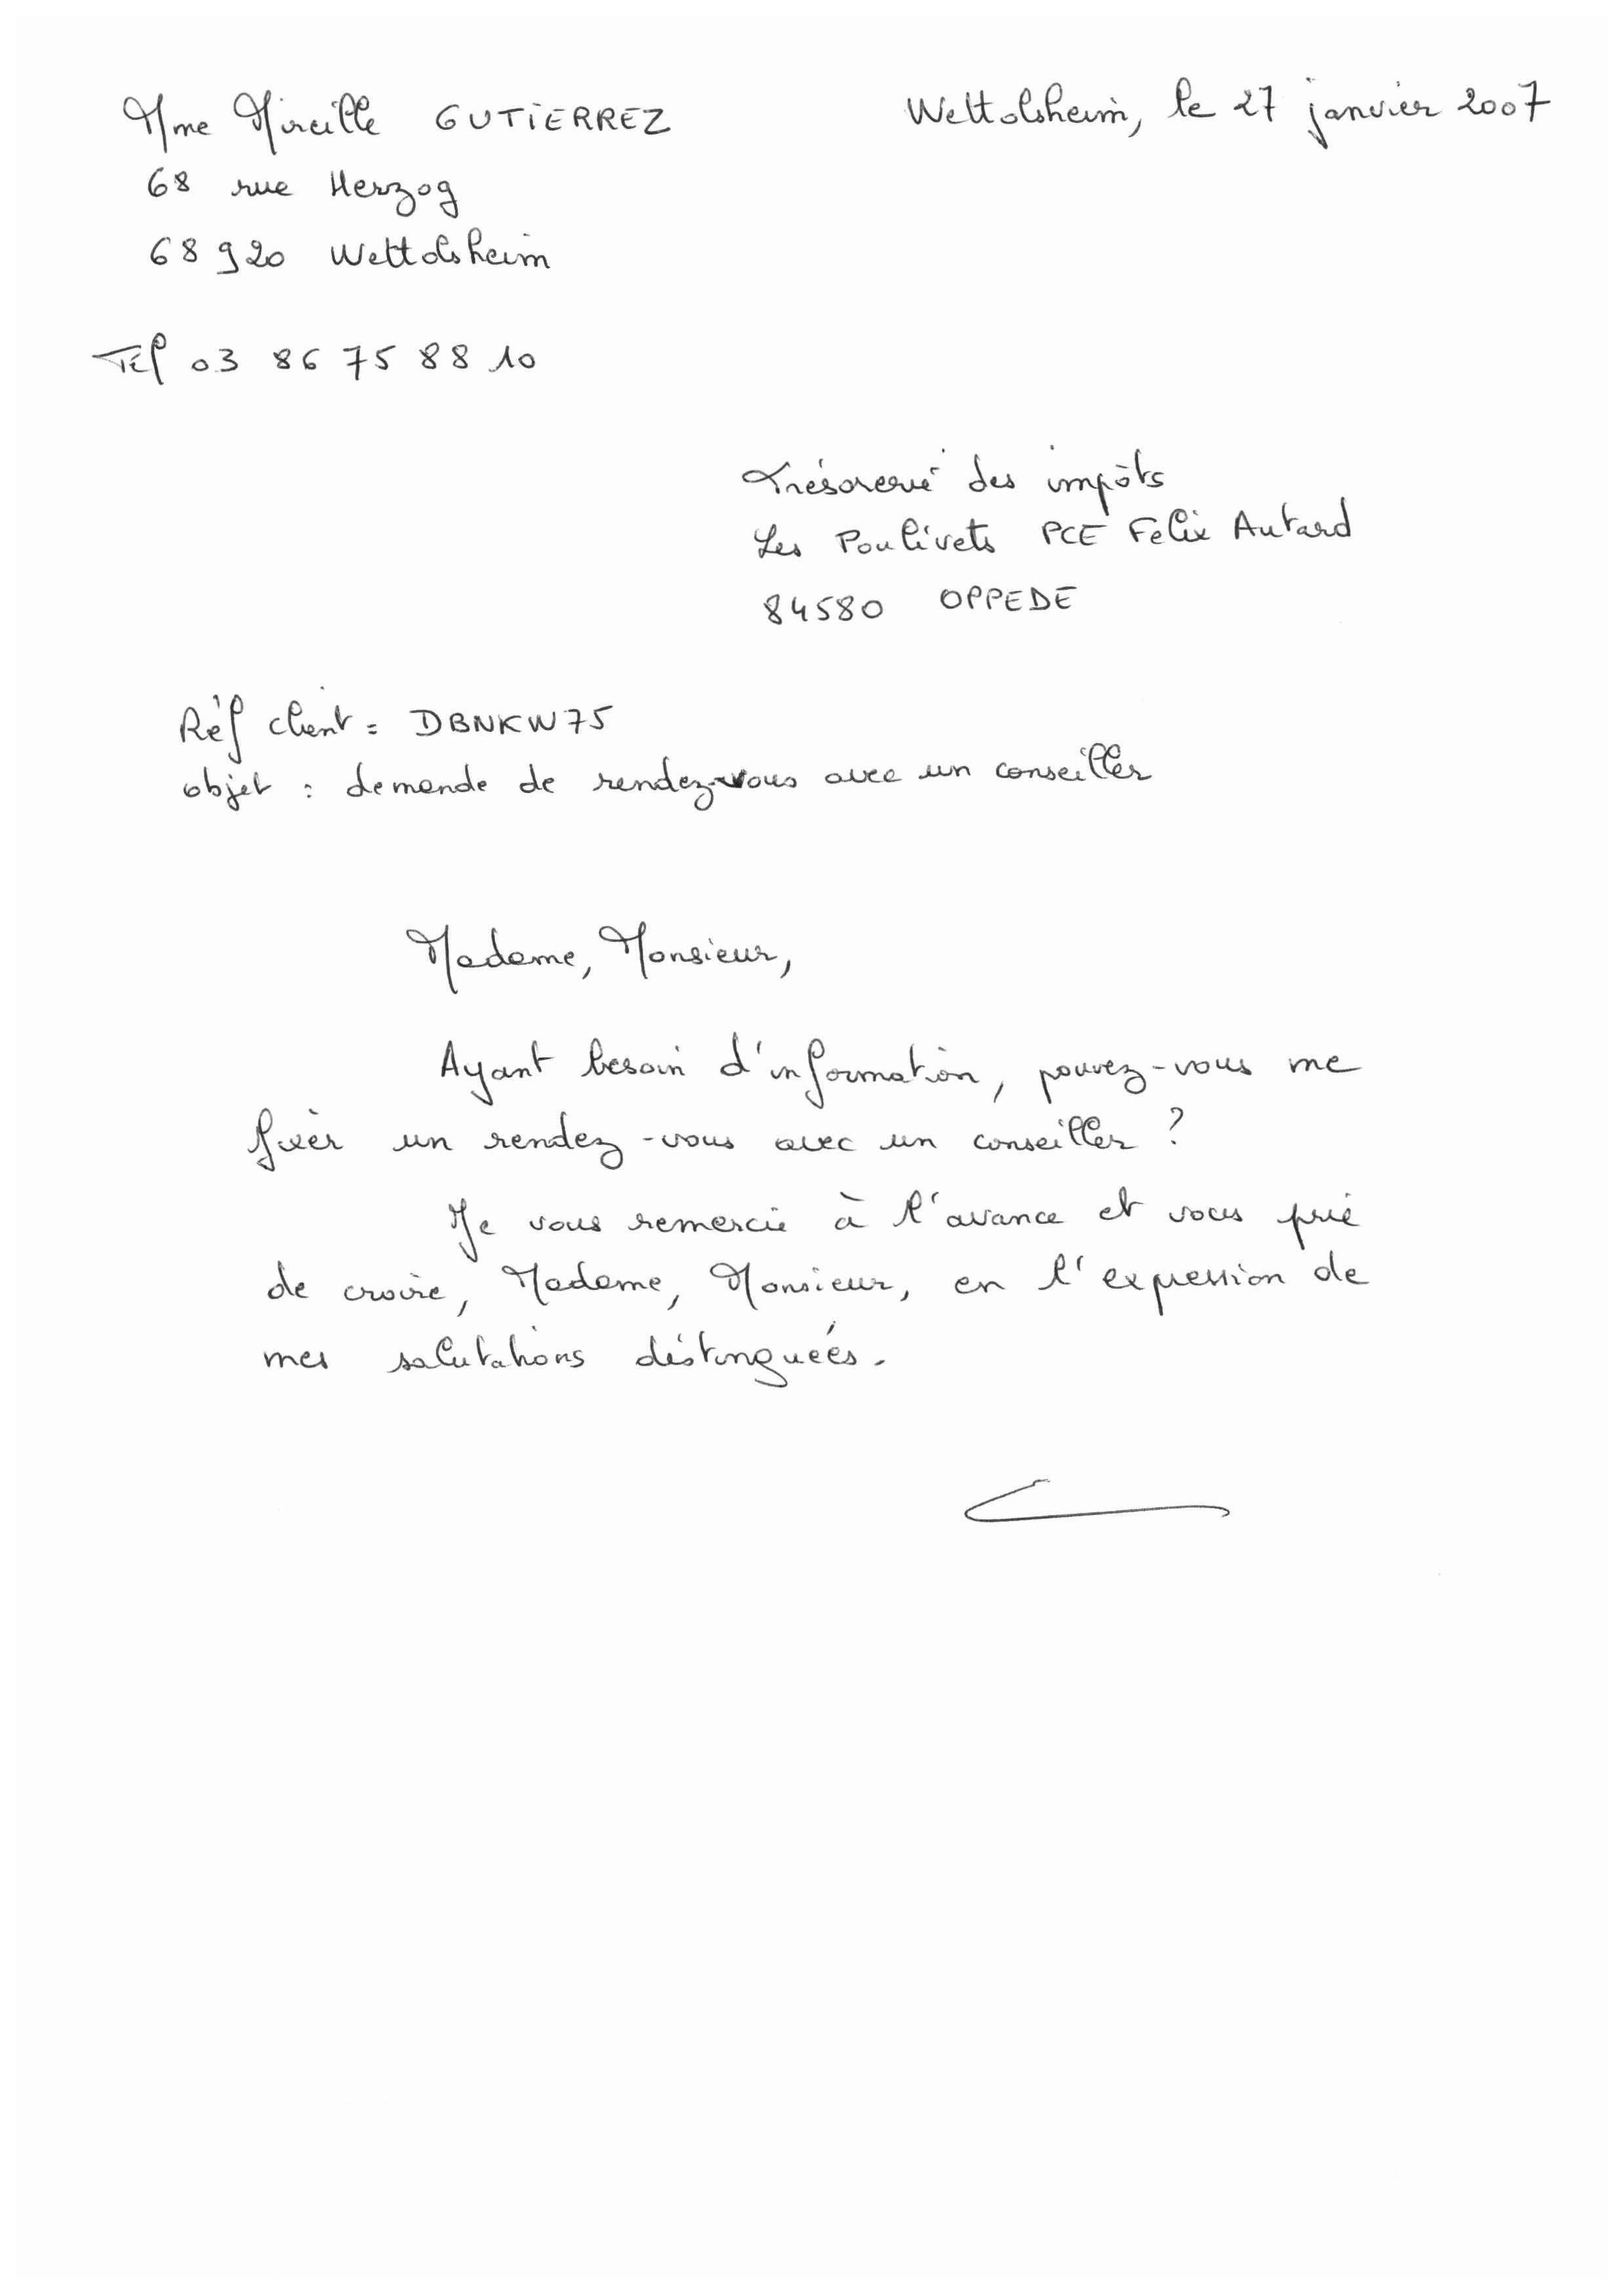 Mme Mireille GUTIERREZ
Wettolsheim, le 27 janvier 2007
68 rue Herzog
68920 Wettolsheim
Tél 03 86 75 88 10
Trésorerie des impôts
Les Poulivets PCE Felix Autard
84580 OPPEDE
Réf client = DBNKW75
objet : demande de rendez-vous avec un conseiller
Madame, Monsieur,
Ayant besoin d'information, pouvez-vous me
fixer un rendez-vous avec un conseiller ?
Je vous remercie à l'avance et vous prie
de croire, Madame, Monsieur, en l'expression de
mes salutations distinguées.